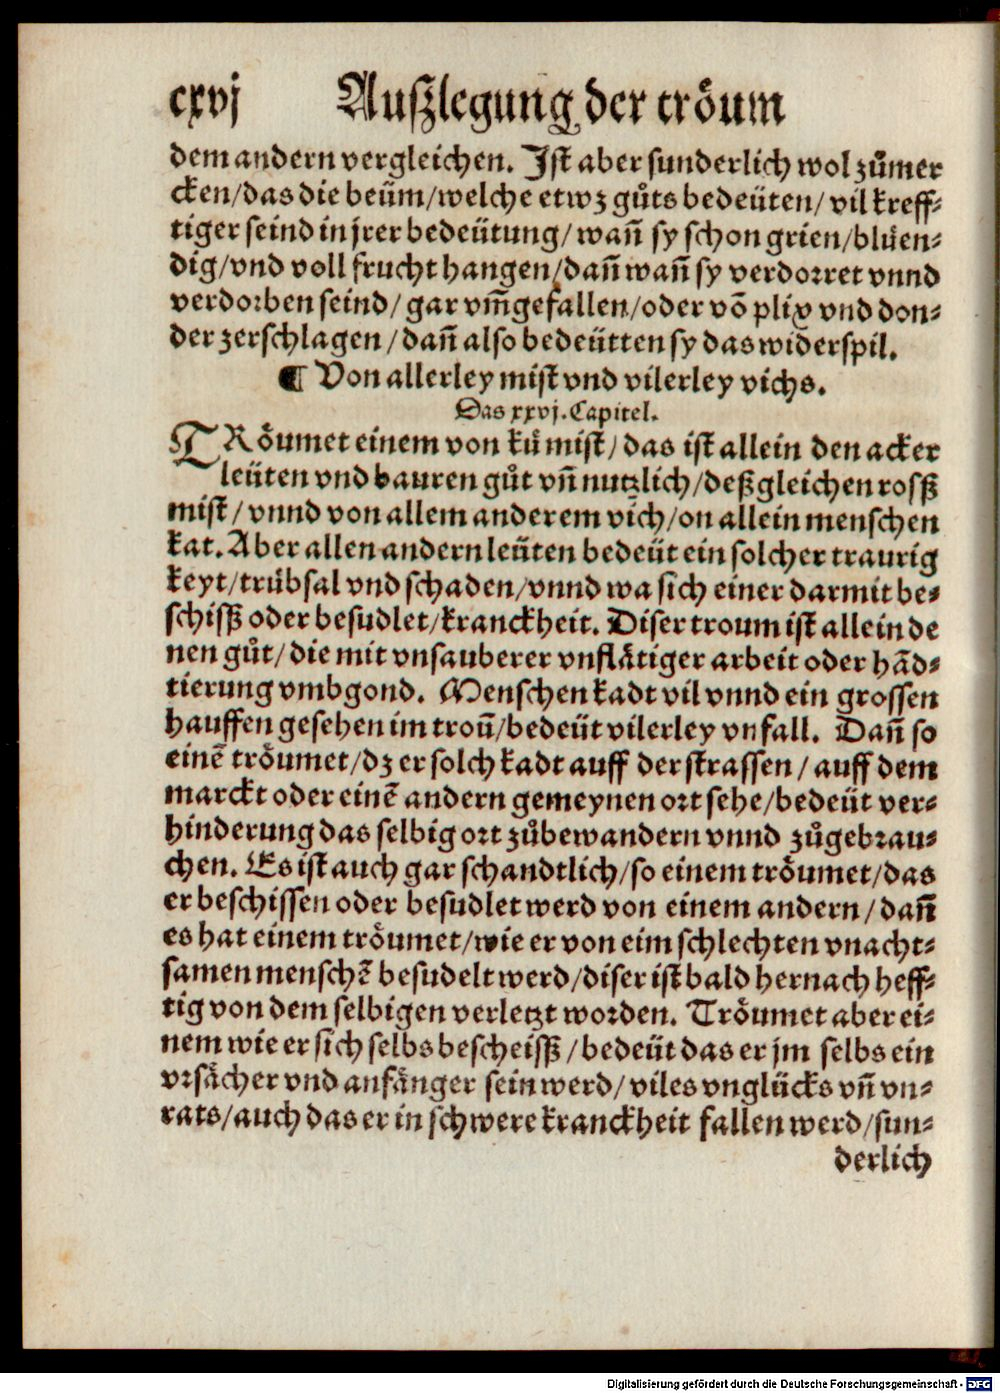 cxvj Auſzlegung der troͤum
dem andern vergleichen. Jſt aber ſunderlich wol zuͦmer
cken/das die beuͤm/welche etwz guͦts bedeuͤten/ vil kreff⸗
tiger ſeind in jrer bedeuͤtung/ wañ ſy ſchon grien/bluͤen⸗
dig/vnd voll frucht hangen/dañ wañ ſy verdorꝛet vnnd
verdoꝛben ſeind/ gar vm̃gefallen/oder võ plix vnd don⸗
der zerſchlagen/dañ alſo bedeuͤtten ſy das widerſpil.
¶ Von allerley miſt vnd vilerley vichs.
Das xxvj. Capitel.
TRoͤumet einem von kuͤ miſt/das iſt allein den acker
leuͤten vnd bauren guͦt vñ nutzlich/deßgleichen roſſz
miſt/ vnnd von allem anderem vich/on allein menſchen
kat. Aber allen andern leuͤten bedeuͤt ein ſolcher traurig
keyt/truͤbſal vnd ſchaden/vnnd wa ſich einer darmit be⸗
ſchiſſz oder beſudlet/kranckheit. Diſer troum iſt allein de
nen guͦt/die mit vnſauberer vnflaͤtiger arbeit oder hãd⸗
tierung vmbgond. Menſchen kadt vil vnnd ein groſſen
hauffen geſehen im troũ/bedeuͤt vilerley vnfall. Dañ ſo
einẽ troͤumet/dz er ſolch kadt auff der ſtraſſen/ auff dem
marckt oder einẽ andern gemeynen oꝛt ſehe/bedeuͤt ver⸗
hinderung das ſelbig oꝛt zuͦbewandern vnnd zuͦgebꝛau⸗
chen. Es iſt auch gar ſchandtlich/ſo einem troͤumet/das
er beſchiſſen oder beſudlet werd von einem andern/ dañ
es hat einem troͤumet/wie er von eim ſchlechten vnacht⸗
ſamen menſchẽ beſudelt werd/diſer iſt bald hernach heff⸗
tig von dem ſelbigen verletzt woꝛden. Troͤumet aber ei⸗
nem wie er ſich ſelbs beſcheiſſz/bedeuͤt das er jm ſelbs ein
vꝛſaͤcher vnd anfaͤnger ſein werd/ viles vngluͤcks vñ vn⸗
rats/auch das er in ſchwere kranckheit fallen werd/ſun⸗
derlich
Digitalisierung gefördert durch die Deutsche Forschungsgemeinschaft - DFG